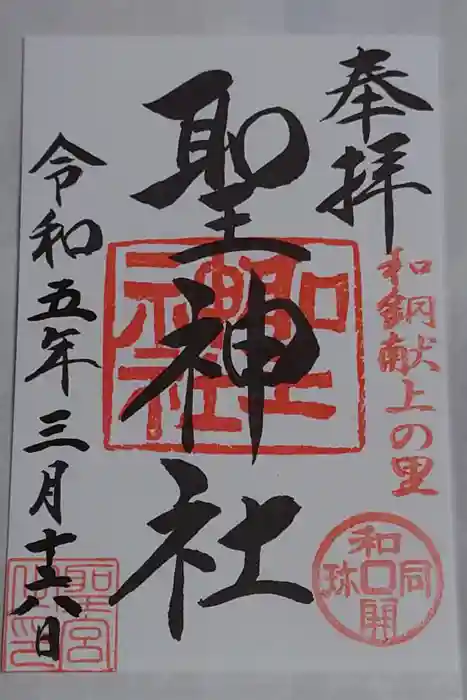 奉拝
和銅献上の里
聖神社
令和五年三月十八日
聖神社
和同開珎